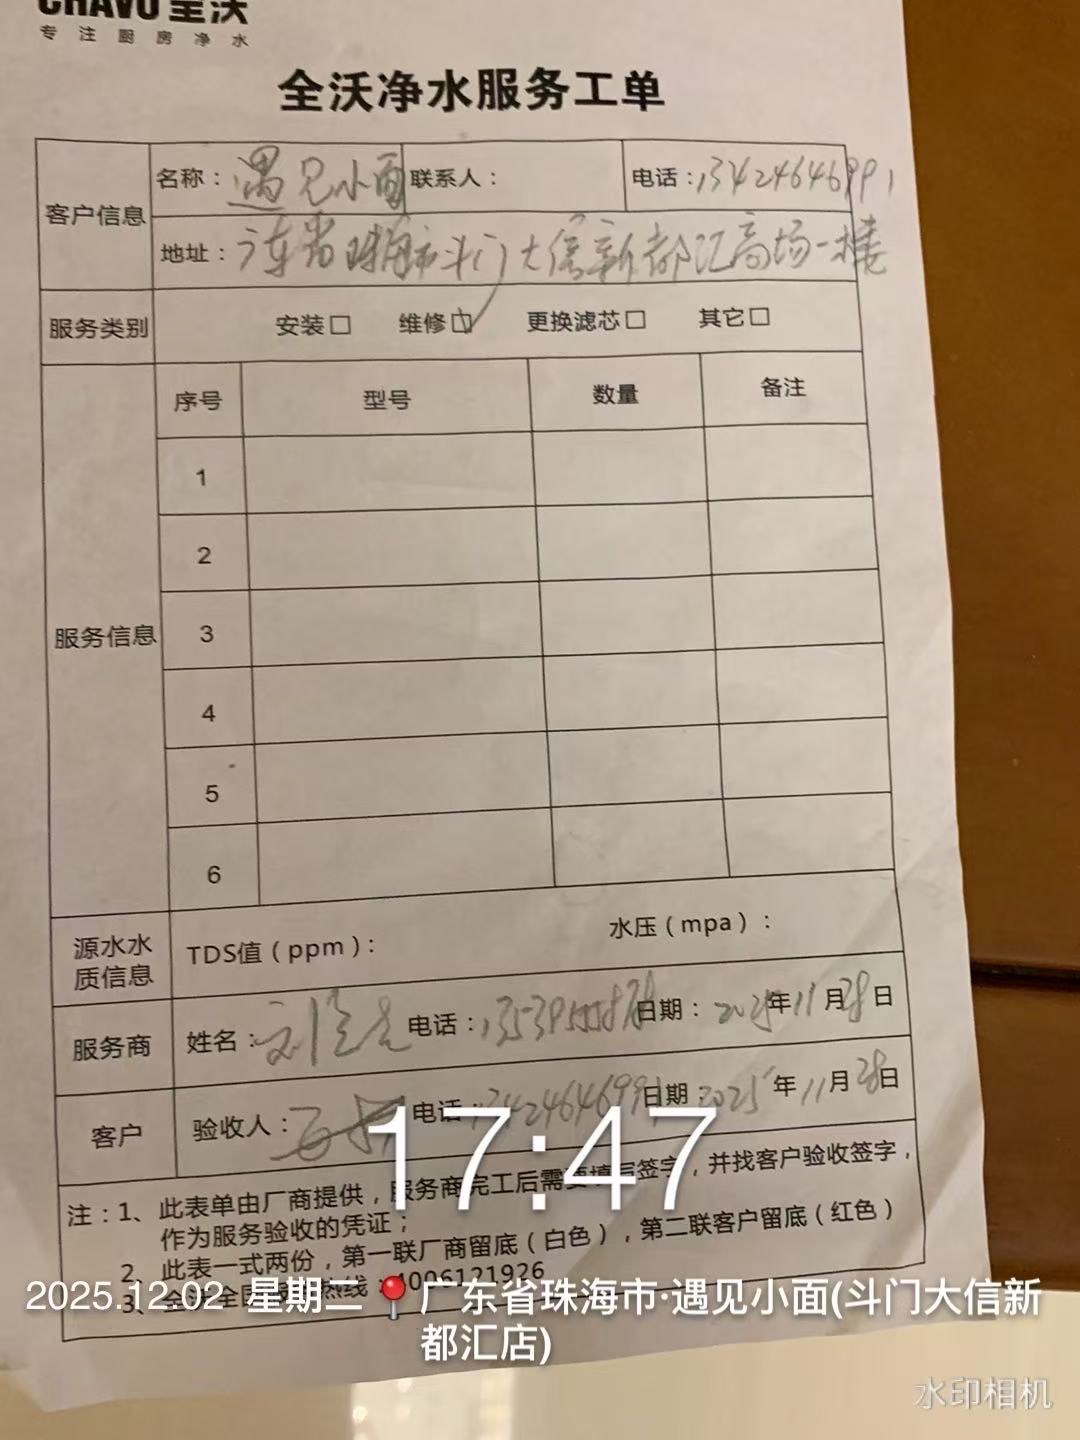 CHAVO 全沃
专注厨房净水
全沃净水服务工单
客户信息
名称：遇见小面 联系人： 电话：13424646991
地址：广东省珠海市斗门大信新都汇商场一楼
服务类别 安装□ 维修☑ 更换滤芯□ 其它□
服务信息
序号 型号 数量 备注
1
2
3
4
5
6
源水水质信息 TDS值（ppm）： 水压（mpa）：
服务商 姓名： 电话： 日期：2025年11月28日
客户 验收人： 电话：13424646991 日期：2025年11月28日
17:47
注：1、此表单由厂商提供，服务商完工后需要填写签字，并找客户验收签字，
作为服务验收的凭证；
2、此表一式两份，第一联厂商留底（白色），第二联客户留底（红色）
3、全沃全国 热线：4006121926
2025.12.02 星期二 广东省珠海市·遇见小面(斗门大信新
都汇店)
水印相机